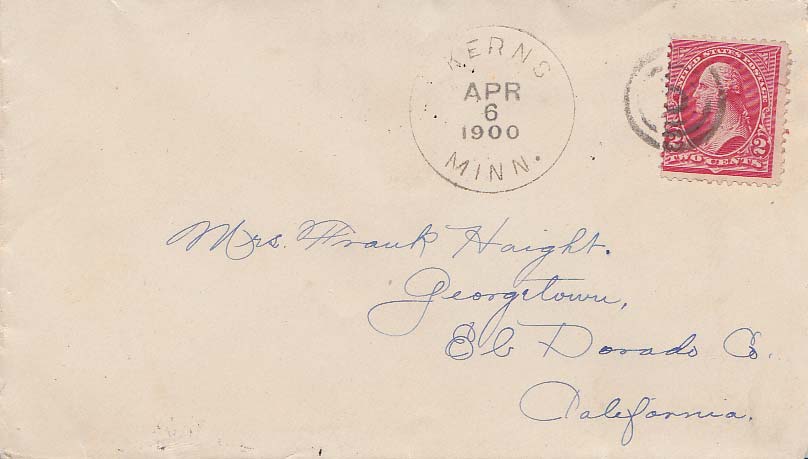 KERNS
APR
6
1900
MINN.
UNITED STATES POSTAGE
2 TWO CENTS 2
Mrs. Frank Haight.
Georgetown,
El Dorado Co.
California.